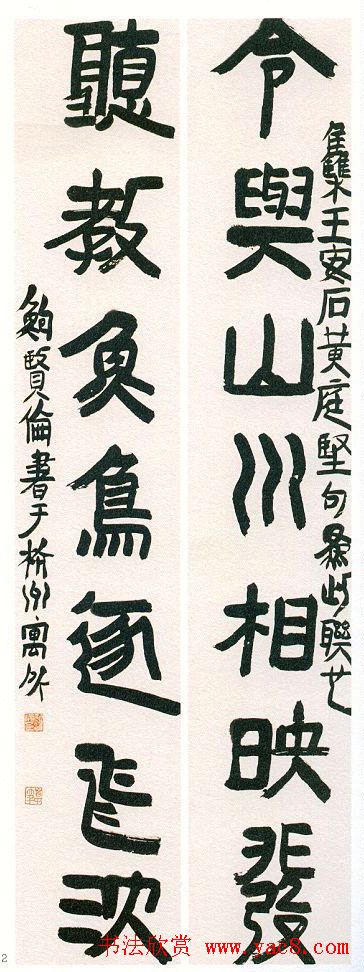 集王安石黃庭堅句爲此聯也
令與山川相映發
聽教魚鳥逐飛沈
鮑賢倫書于杭州寓所
2
书法欣赏 www.yac8.com